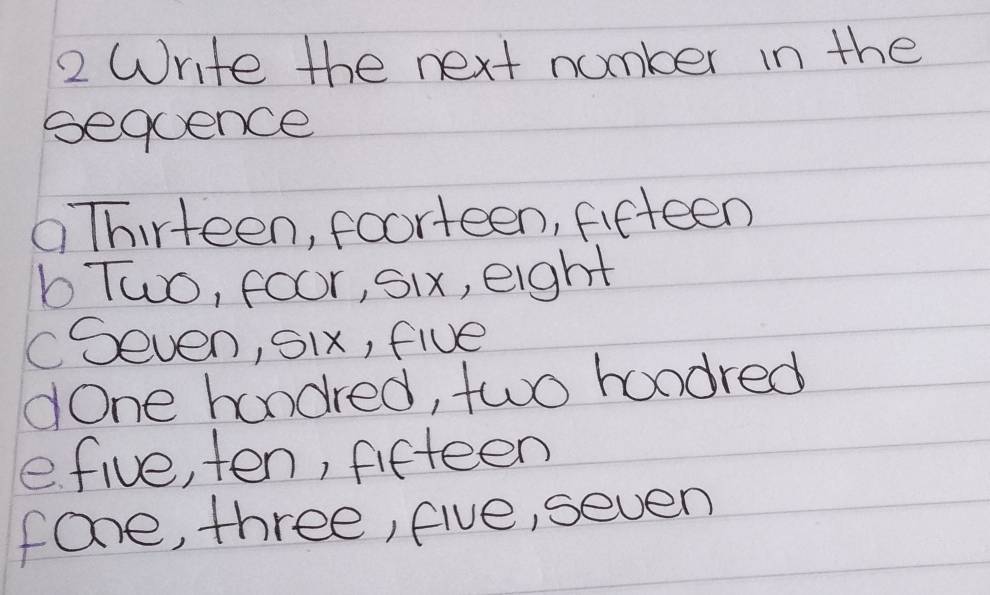 2 Write the next number in the
sequence
a Thirteen, fourteen, fifteen
b Two, four, six, eight
c Seven, six, five
d One hundred, two hundred
e. five, ten, fifteen
f One, three, five, seven